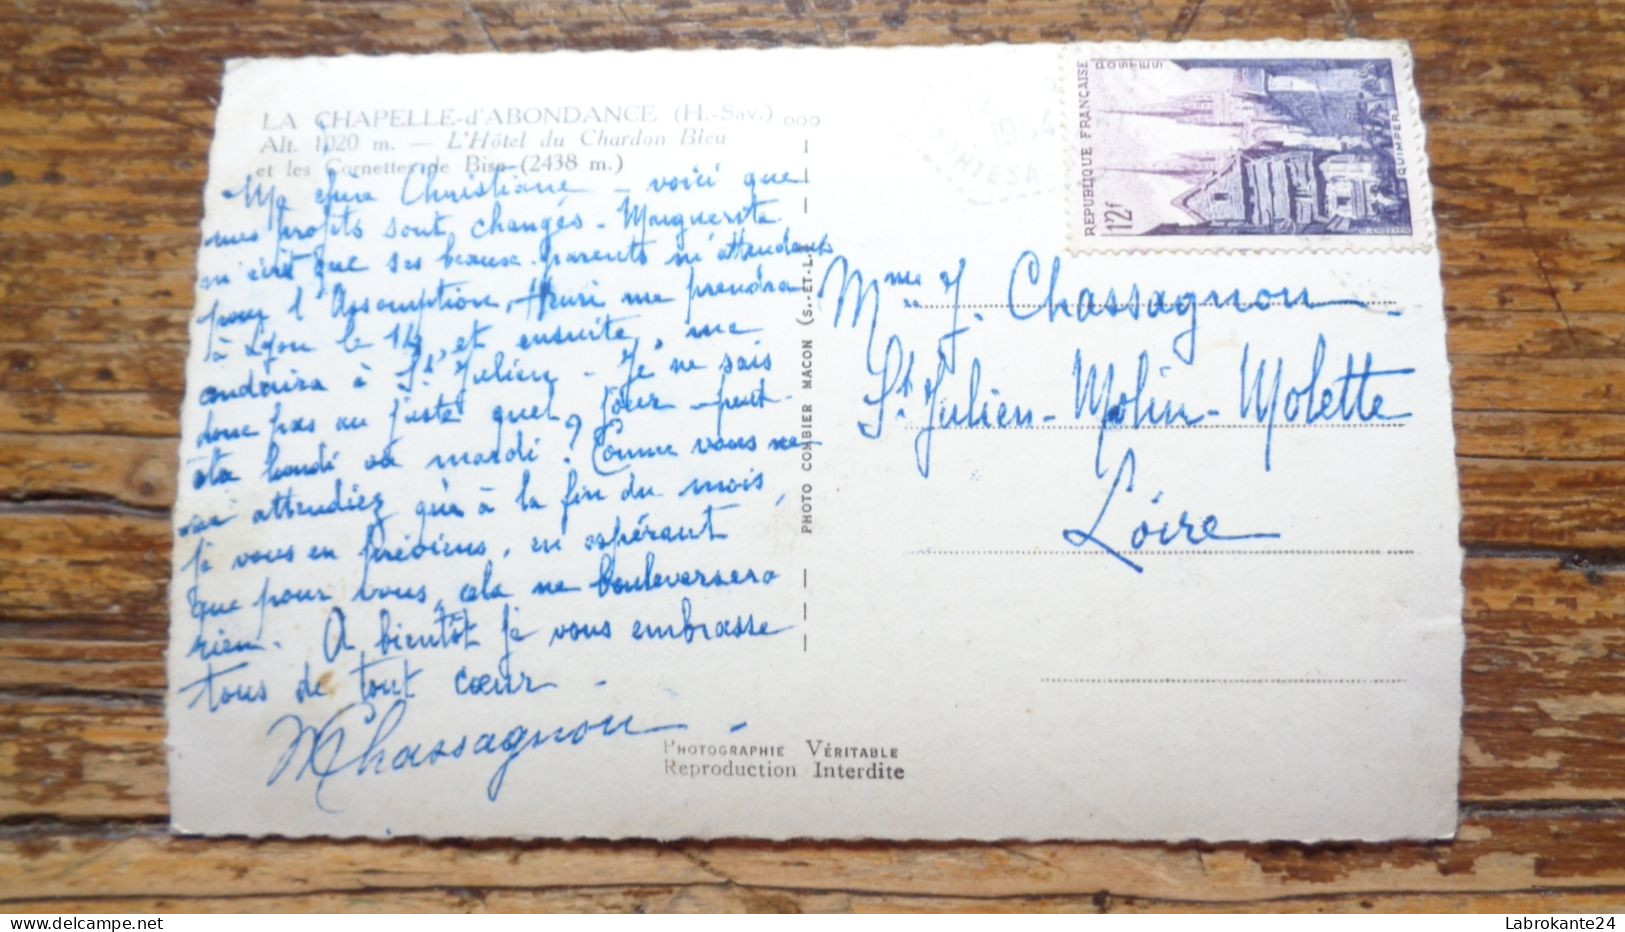 LA CHAPELLE-d'ABONDANCE (H.-Sav.) ooo
Alt. 1020 m. — L'Hôtel du Chardon Bleu
et les Cornettes de Bise (2438 m.)
Ma chère Christiane - voici que
mes projets sont changés - Marguerite
m'écrit que ses beaux-parents m'attendent
pour l'Assomption, Henri me prendra
à Lyon le 14, et ensuite, me
conduira à St Julien - Je ne sais
donc pas au juste quel jour - peut-
être lundi ou mardi ? Comme vous ne
m'attendiez qu'à la fin du mois,
je vous en préviens, en espérant
que pour vous, cela ne bouleversera
rien. A bientôt je vous embrasse
tous de tout cœur -
MChassagnon -
PHOTO COMBIER MACON (S.-ET-L.)
PHOTOGRAPHIE VÉRITABLE
Reproduction Interdite
12
1954
REPUBLIQUE FRANÇAISE
POSTES
12f
QUIMPER
Mme J. Chassagnon
St Julien-Molin-Molette
Loire
Labrokante24